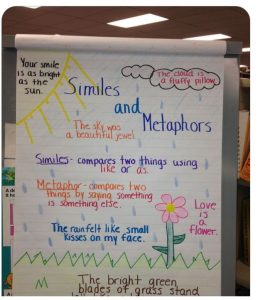 Your smile
is as bright
as the
sun.
The cloud is
a fluffy pillow.
Similes
and
Metaphors
The sky was
a beautiful jewel.
Similes - compares two things using
like or as.
Metaphor - compares two
things by saying something
is something else.
Love
is a
flower.
The rain felt like small
kisses on my face.
The bright green
blades of grass stand